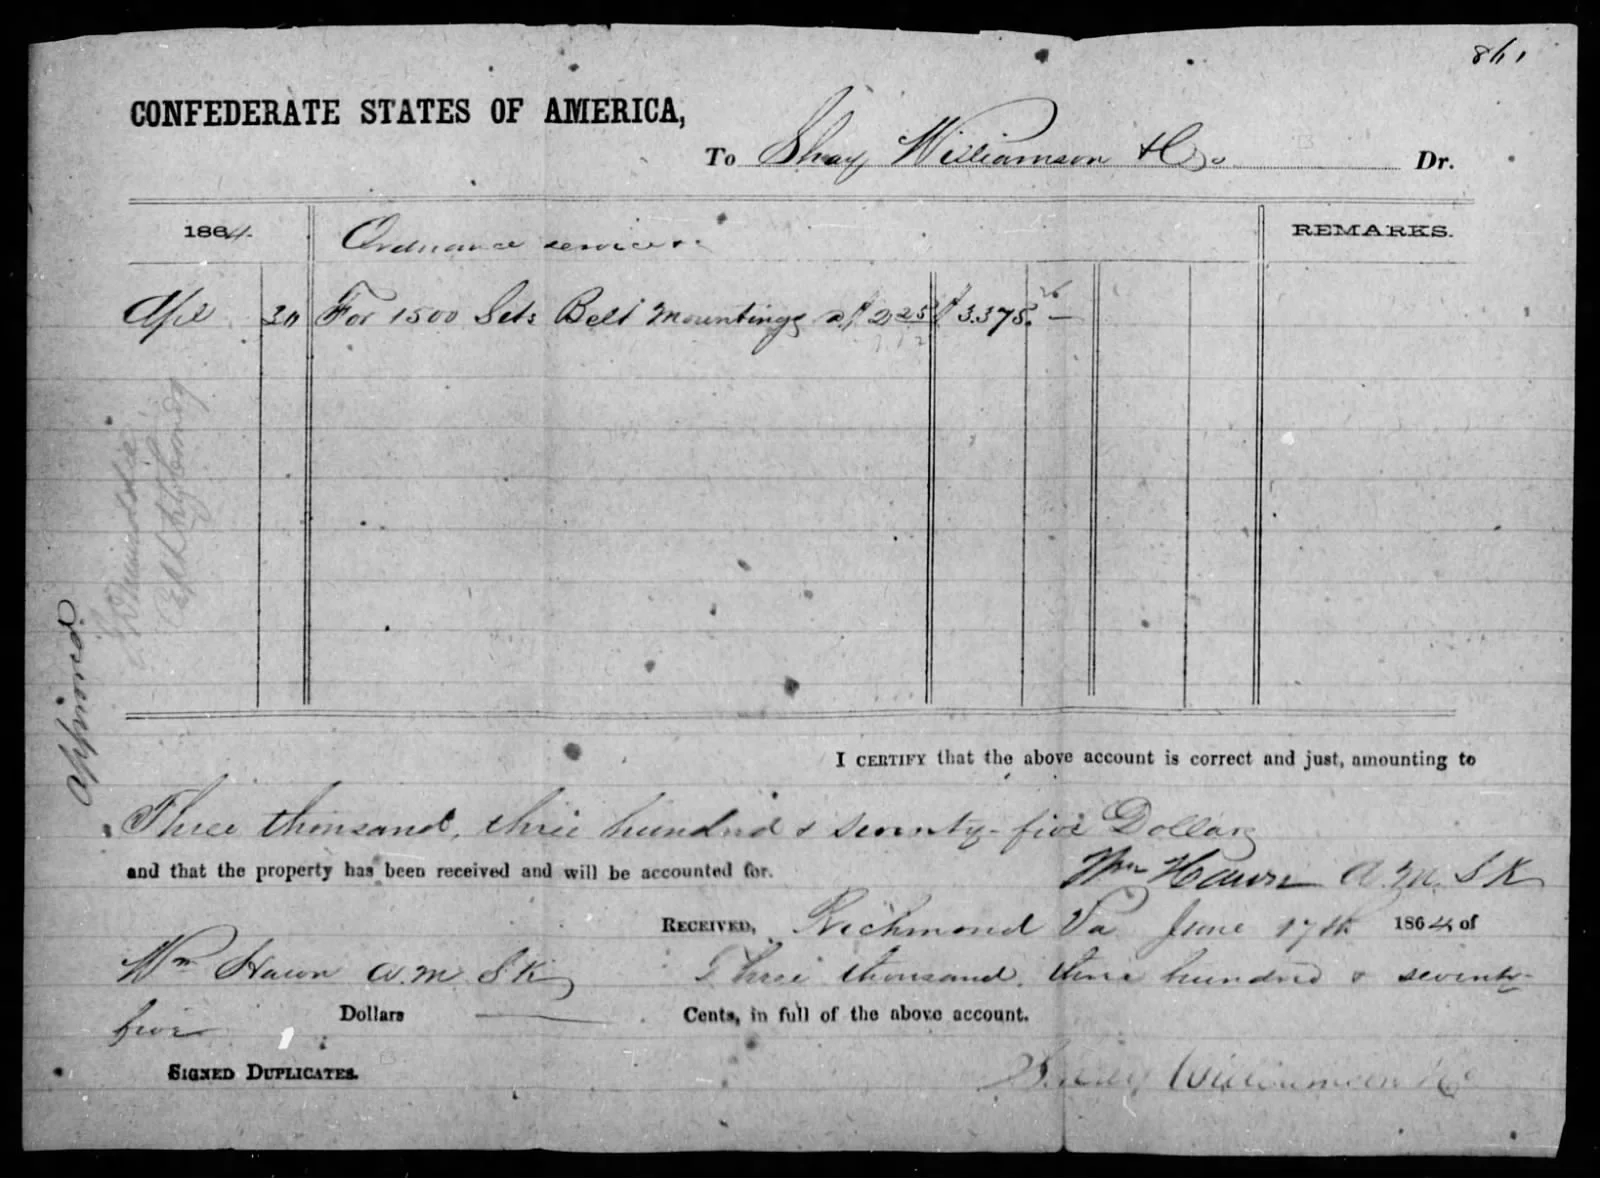 861
CONFEDERATE STATES OF AMERICA,
To Shay Williamson & Co Dr.
1864. Ordnance service REMARKS.
Apl 20 For 1500 Sets Belt Mountings a $ 2 25 $ 3.375. —
Approved
I CERTIFY that the above account is correct and just, amounting to
Three thousand, three hundred & seventy-five Dollars
and that the property has been received and will be accounted for.
Wm Hawn A. M. S K
RECEIVED, Richmond Va June 17th 1864 of
Wm Hawn A. M. S. K. Three thousand, three hundred & seventy-
five Dollars — Cents, in full of the above account.
SIGNED DUPLICATES.
Shay Williamson & Co